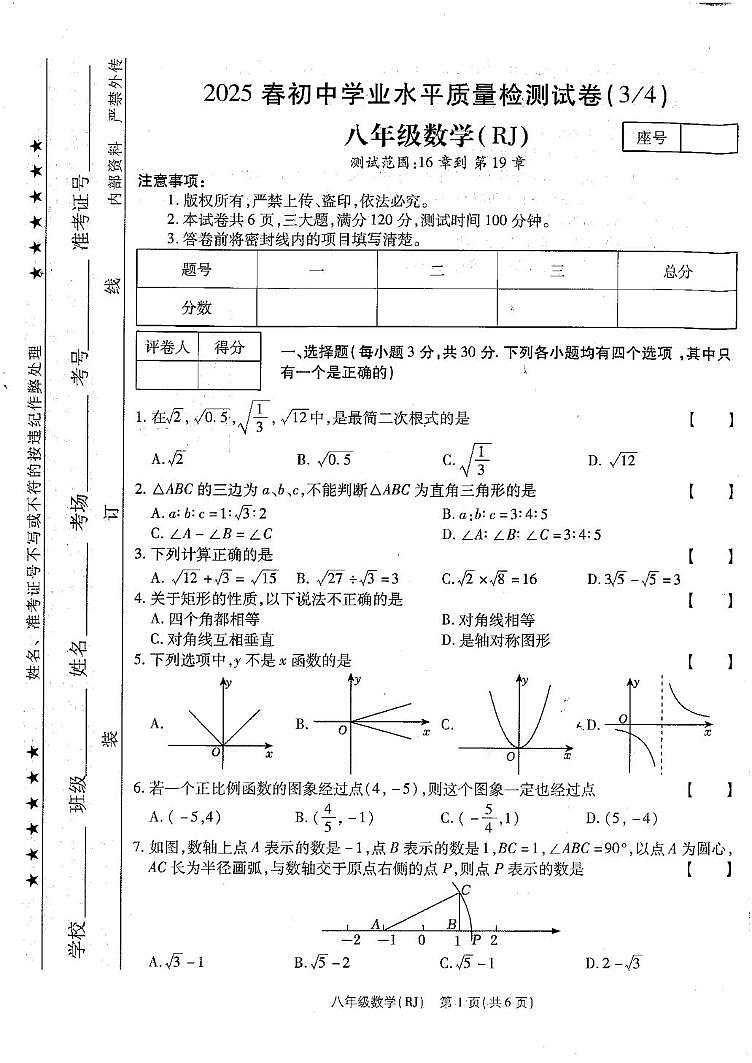 2025春初中学业水平质量检测试卷(3/4)
八年级数学(RJ)
座号
测试范围:16章到第19章
注意事项:
1. 版权所有,严禁上传、盗印,依法必究。
2. 本试卷共6页,三大题,满分120分,测试时间100分钟。
3. 答卷前将密封线内的项目填写清楚。
题号 一 二 三 总分
分数
评卷人 得分
一、选择题(每小题3分,共30分. 下列各小题均有四个选项,其中只
有一个是正确的)
1. 在√2, √0.5, √(1/3), √12中,是最简二次根式的是 【 】
A. √2 B. √0.5 C. √(1/3) D. √12
2. △ABC的三边为a、b、c,不能判断△ABC为直角三角形的是 【 】
A. a∶b∶c=1∶√3∶2 B. a∶b∶c=3∶4∶5
C. ∠A-∠B=∠C D. ∠A∶∠B∶∠C=3∶4∶5
3. 下列计算正确的是 【 】
A. √12+√3=√15 B. √27÷√3=3 C. √2×√8=16 D. 3√5-√5=3
4. 关于矩形的性质,以下说法不正确的是 【 】
A. 四个角都相等 B. 对角线相等
C. 对角线互相垂直 D. 是轴对称图形
5. 下列选项中,y不是x函数的是 【 】
A. y O x B. y O x C. y O x D. y O x
6. 若一个正比例函数的图象经过点(4,-5),则这个图象一定也经过点 【 】
A. (-5,4) B. (4/5,-1) C. (-5/4,1) D. (5,-4)
7. 如图,数轴上点A表示的数是-1,点B表示的数是1,BC=1,∠ABC=90°,以点A为圆心,
AC长为半径画弧,与数轴交于原点右侧的点P,则点P表示的数是 【 】
C
A B
-2 -1 0 1 P 2
A. √3-1 B. √5-2 C. √5-1 D. 2-√3
八年级数学(RJ) 第1页(共6页)
★★★★★★★ 姓名、准考证号不写或不符的按违纪作弊处理 ★★★★★★★
学校 班级 姓名 考场 考号 准考证号
装 订 线 内部资料 严禁外传